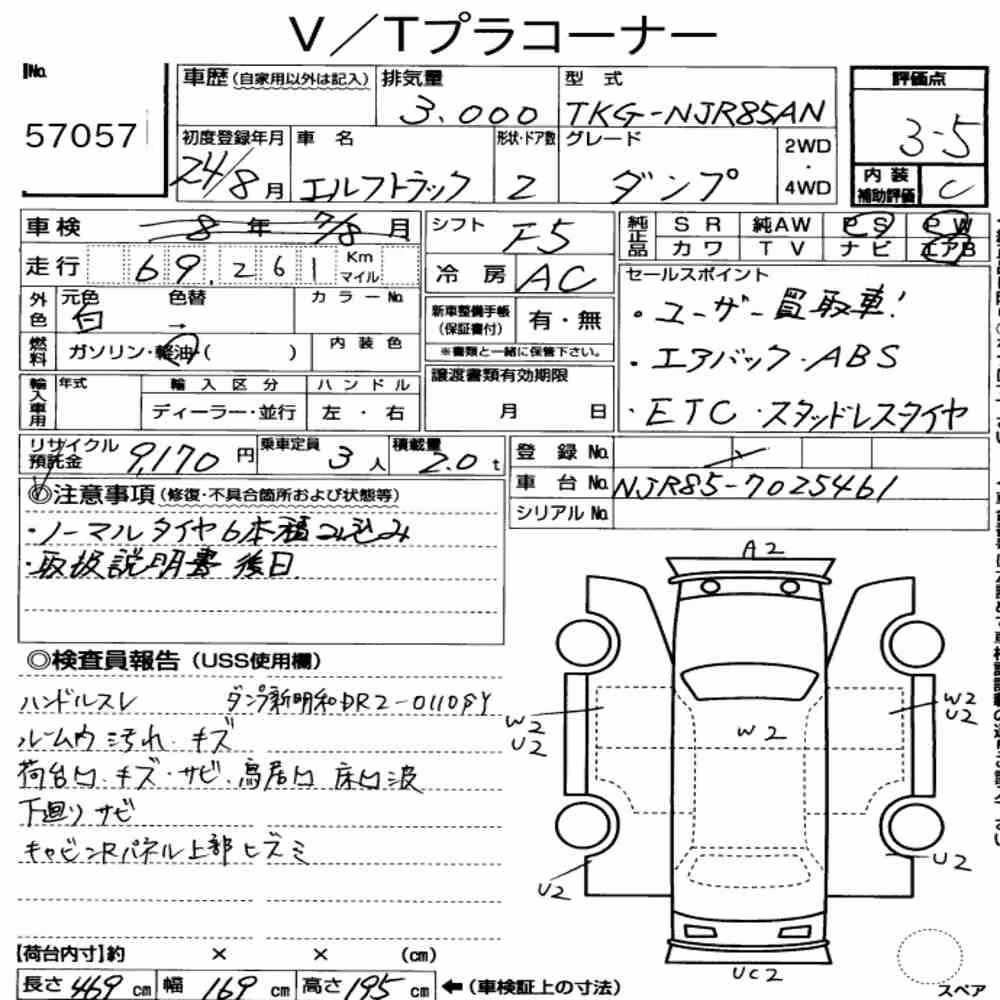 V／Tプラコーナー
No.
57057
車歴（自家用以外は記入）
排気量
3.000
型 式
TKG-NJR85AN
評価点
3-5
初度登録年月
24/8月
車 名
エルフトラック
形状・ドア数
2
グレード
ダンプ
2WD
・
4WD
内 装
補助評価
C
車検
8年 7/8月
シフト
F5
純正品
SR 純AW PS PW
カワ TV ナビ エアB
走行
69,261
Km
マイル
冷 房
AC
セールスポイント
・ユーザー買取車!
・エアバック・ABS
・ETC・スタッドレスタイヤ
外色
元色
白
色替
→
カラーNo.
新車整備手帳
（保証書付）
有・無
※書類と一緒に保管下さい。
燃料
ガソリン・軽油（ ）
内装色
輸入車用
年式
輸入区分
ディーラー・並行
ハンドル
左 ・ 右
譲渡書類有効期限
月 日
リサイクル
預託金
9,170円
乗車定員
3人
積載量
2.0t
登 録 No.
車 台 No.
NJR85-7025461
シリアル No.
◎注意事項（修復・不具合箇所および状態等）
・ノーマルタイヤ6本積み込み
・取扱説明書 後日
◎検査員報告（USS使用欄）
ハンドルスレ ダンプ新明和DR2-01108Y
ルーム内汚れ・キズ
荷台凹・キズ・サビ・鳥居凹 床凹波
下廻りサビ
キャビンRパネル上部ヒズミ
A2
W2
U2
W2
W2
U2
U2
U2
UC2
スペア
【荷台内寸】約 × × （cm）
長さ469cm 幅169cm 高さ195cm ←（車検証上の寸法）